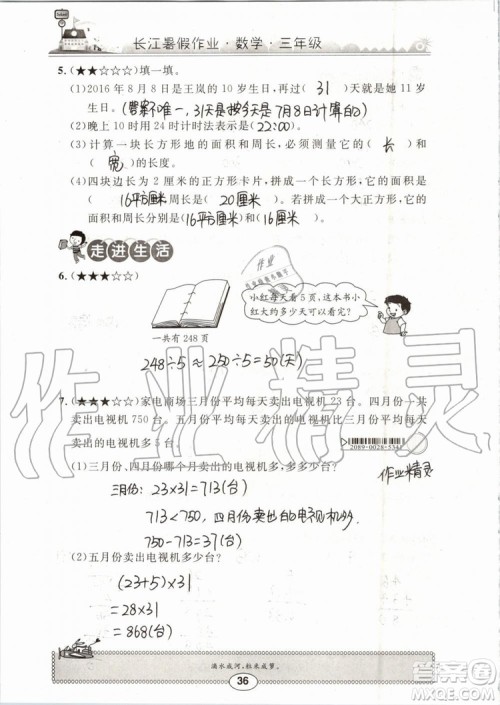 长江暑假作业·数学·三年级
5.(★★☆☆☆)填一填。
(1)2016年8月8日是王岚的10岁生日，再过( 31 )天就是她11岁
生日。(答案不唯一,31天是按今天是7月8日计算的)
(2)晚上10时用24时计时法表示是( 22:00 )。
(3)计算一块长方形地的面积和周长，必须测量它的( 长 )和
( 宽 )的长度。
(4)四块边长为2厘米的正方形卡片，拼成一个长方形，它的面积
是( 16平方厘米 )周长是( 20厘米 )。若拼成一个大正方形，它
的面积和周长分别是( 16平方厘米 )( 16厘米 )。
走进生活
6.(★★★☆☆)
小红每天看5页,这本书小
红大约多少天可以看完?
一共有248页
248÷5≈250÷5=50(天)
7.(★★★☆☆)家电商场三月份平均每天卖出电视机23台。四月份一共
卖出电视机750台。五月份平均每天卖出电视机的台数比三月份平均
每天多5台。
2089-0028-5341
(1)三月份、四月份哪个月卖出的电视机多,多多少台?
作业精灵
三月份: 23×31=713(台)
713<750,四月份卖出的电视机多
750-713=37(台)
(2)五月份卖出电视机多少台?
(23+5)×31
=28×31
=868(台)
滴水成河,粒米成箩。
36
作业精灵
答案圈
MXQE.COM